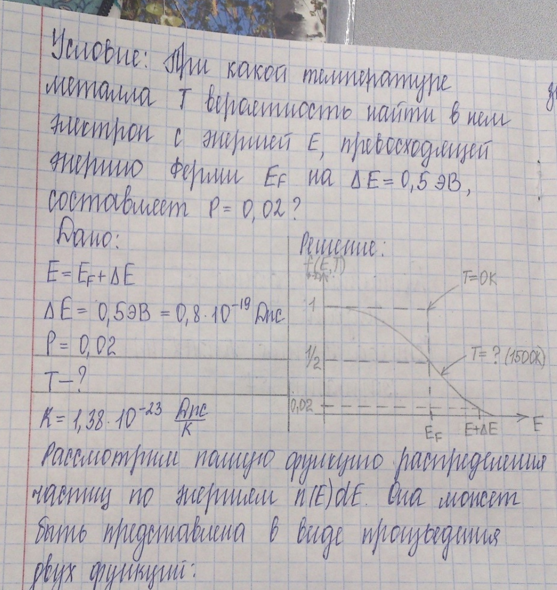 Условие: При какой температуре
металла T вероятность найти в нем
электрон с энергией E, превосходящей
энергию Ферми E_F на ΔE = 0,5 эВ,
составляет P = 0,02?
Дано:
E = E_F + ΔE
ΔE = 0,5 эВ = 0,8·10⁻¹⁹ Дж
P = 0,02
T – ?
K = 1,38·10⁻²³ Дж/К
Решение:
f(E,T)
1
T=0K
1/2
T=? (1500K)
0,02
E_F
E+ΔE
E
Рассмотрим полную функцию распределения
частиц по энергиям n(E)dE. Она может
быть представлена в виде произведения
двух функций: